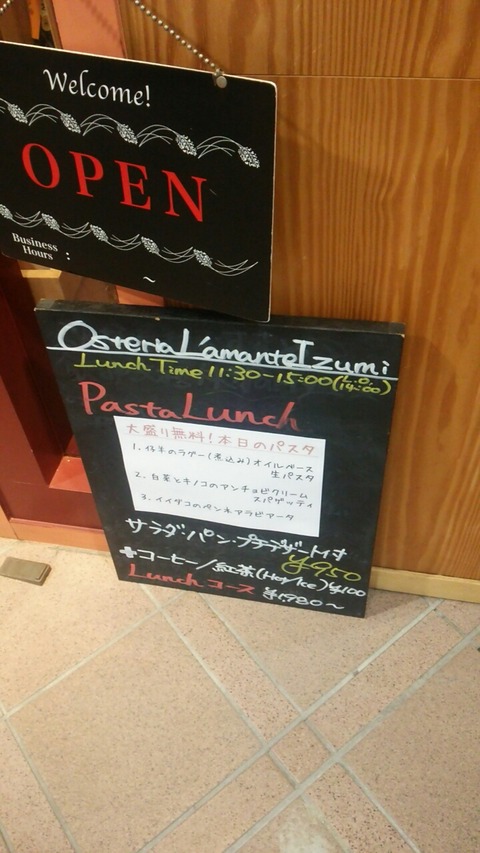 Welcome!
OPEN
Business
Hours : ~
Osteria L'amante Izumi
Lunch Time 11:30~15:00(L.O. 14:00)
Pasta Lunch
大盛り無料!本日のパスタ
1.仔羊のラグー(煮込み)オイルベース
生パスタ
2.白菜とキノコのアンチョビクリーム
スパゲッティ
3.イイダコのペンネアラビアータ
サラダ・パン・プチデザート付
¥950
+コーヒー/紅茶(Hot/Ice)¥100
Lunchコース ¥1,980~